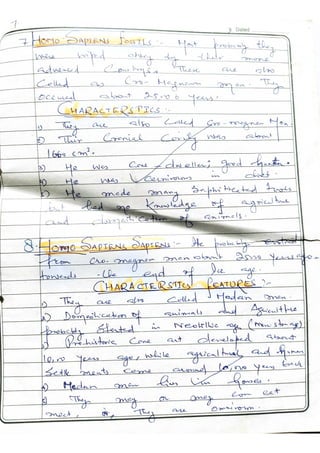 7. HOMO SAPIENS FOSSILS :- Most probably they
were wiped away by their more
advanced They are also
Called as Cro-Magnon men. They
occured about 25,000 years.
CHARACTERSTICS :-
1) They are also Called Cro-magnon Man.
2) Their Cranial Cavity was about
1660 cm³.
3) He was Cave dwellers, good hunter.
4) He was Carnivorous in diet.
5) He made many Sophisticated tools
but had no knowledge of agriculture
and domestication of animals.
8. HOMO SAPIENS SAPIENS :- He probably evolved
from cro-magnon man about 25000 years ago
towards the end of Ice age.
CHARACTERSTICS FEATURES :-
1) They are also Called Modern man.
2) Domestication of animals and Agriculture
probably Started in Neolithic age
3) Prehistoric Cave art developed about
years ago, while agriculture and human
Settlements came around 10,000 years back
4) Modern man live in houses.
5) They may or may can eat
meat, is, They are omnivores.